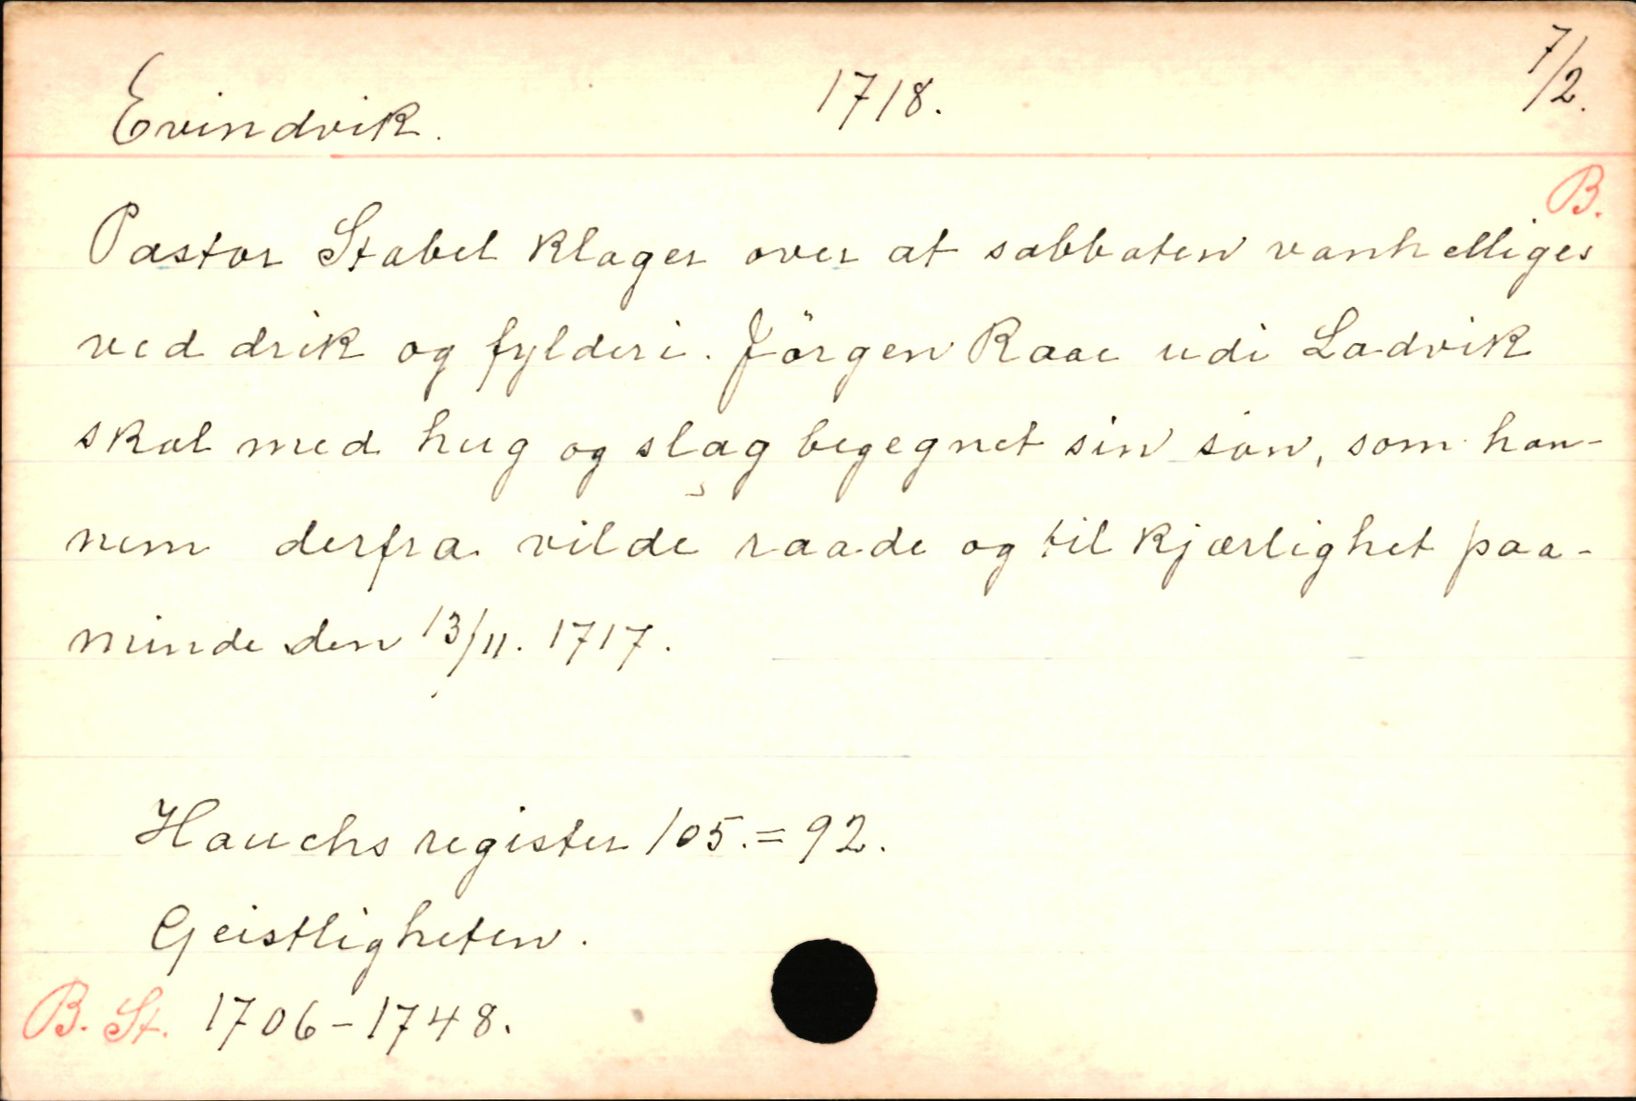 Evindvik. 1718. 7/2.
B.
Pastor Stabel klager over at sabbaten vanhelliges
ved drik og fylderi. Jörgen Raae udi Ladvik
skal med hug og slag begegnet sin sön, som han-
nem derfra vilde raade og til kjærlighet paa-
minde den 13/11. 1717.
Hauchs register 105. = 92.
Geistligheten.
B. St. 1706-1748.